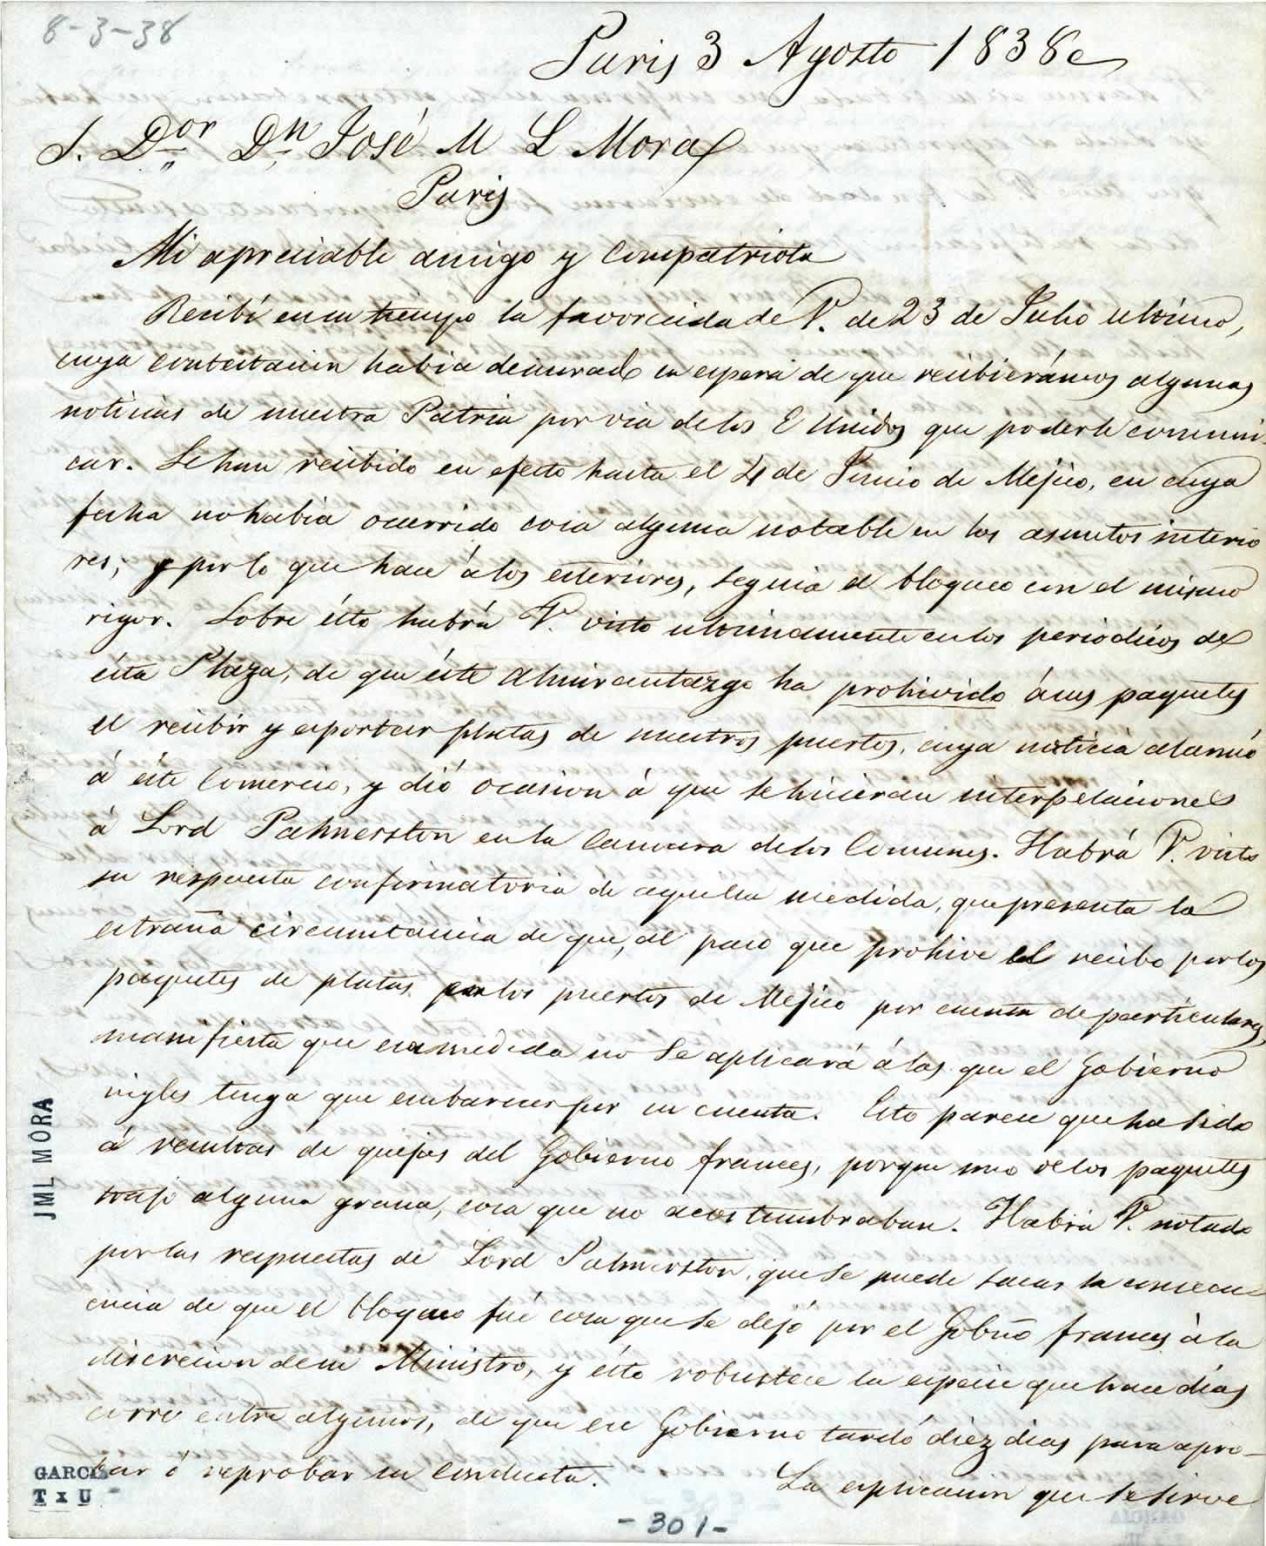 8-3-38
Paris 3 Agosto 1838
S. Dor Dn José M L Mora
Paris
Mi apreciable amigo y compatriota
Recibí en su tiempo la favorecida de V. de 23 de Julio ultimo,
cuya contestacion habia demorado en espera de que recibierámos algunas
noticias de nuestra Patria por via de los E Unidos que poderle comuni
car. Se han recibido en efecto hasta el 4 de Junio de Mejico, en cuya
fecha no habia ocurrido cosa alguna notable en los asuntos interio
res; y por lo que hace á los esteriores, seguia el bloqueo con el mismo
rigor. Sobre ésto habrá V. visto ultimamente en los periodicos de
ésta Plaza, de que éste Almirantazgo ha prohivido á sus paquetes
el recibir y esportar platas de nuestros puertos, cuya noticia alarmó
á éste Comercio, y dió ocasion á que se hicieran interpelaciones
á Lord Palmerston en la Camara de los Comunes. Habrá V. visto
su respuesta confirmatoria de aquella medida, que presenta la
estraña circunstancia de que, al paso que prohive el recibo por los
paquetes de platas en los puertos de Mejico por cuenta de particulares,
manifiesta que esa medida no se aplicará á las que el Gobierno
ingles tenga que embarcar por su cuenta. Esto parece que ha sido
á resultas de quejas del Gobierno frances, porque uno de los paquetes
trajo alguna grana, cosa que no acostumbraban. Habrá V. notado
por las respuestas de Lord Palmerston, que se puede sacar la consecu
encia de que el bloqueo fué cosa que se dejó por el Gobno frances á la
discrecion de su Ministro, y ésto robustece la especie que hace dias
corre entre algunos, de que ese Gobierno tardó diez dias para apro-
bar ó reprobar su conducta. La esplicacion que se sirve
JML MORA
GARCIA
T x U
-301-